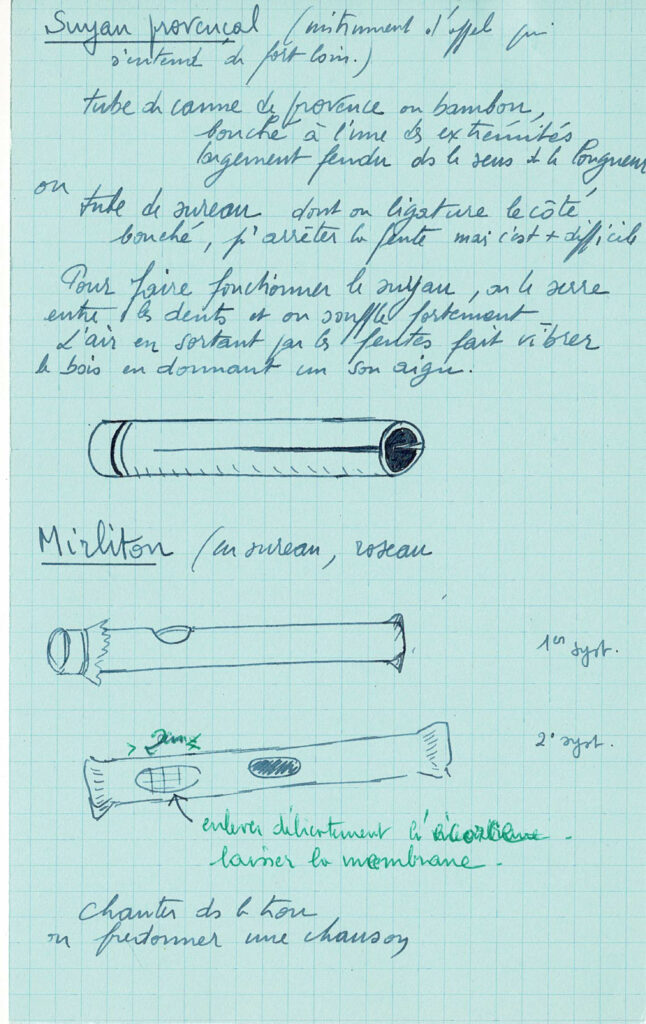 Suyan provençal (instrument d'appel qui
s'entend de fort loin.)
tube de canne de provence ou bambou,
bouché à l'une des extrémités
largement fendu ds le sens de la longueur
ou
tube de sureau dont on ligature le côté
bouché, pr arrêter la fente mais c'est + difficile
Pour faire fonctionner le suyan, on le serre
entre les dents et on souffle fortement
L'air en sortant par les fentes fait vibrer
le bois en donnant un son aigu.
Mirliton (en sureau, roseau
1er syst.
2e syst.
enlever délicatement l'
laisser la membrane.
chanter ds le trou
ou fredonner une chanson